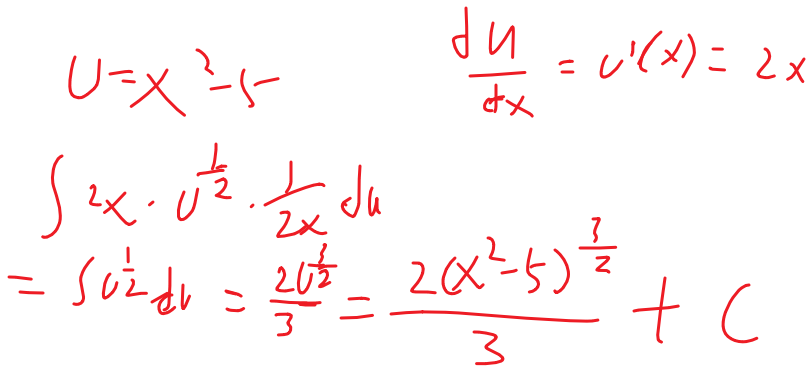 U = x² - 5    du/dx = u'(x) = 2x
∫ 2x · u^(1/2) · 1/(2x) du
= ∫ u^(1/2) du = 2u^(3/2)/3 = 2(x² - 5)^(3/2)/3 + C